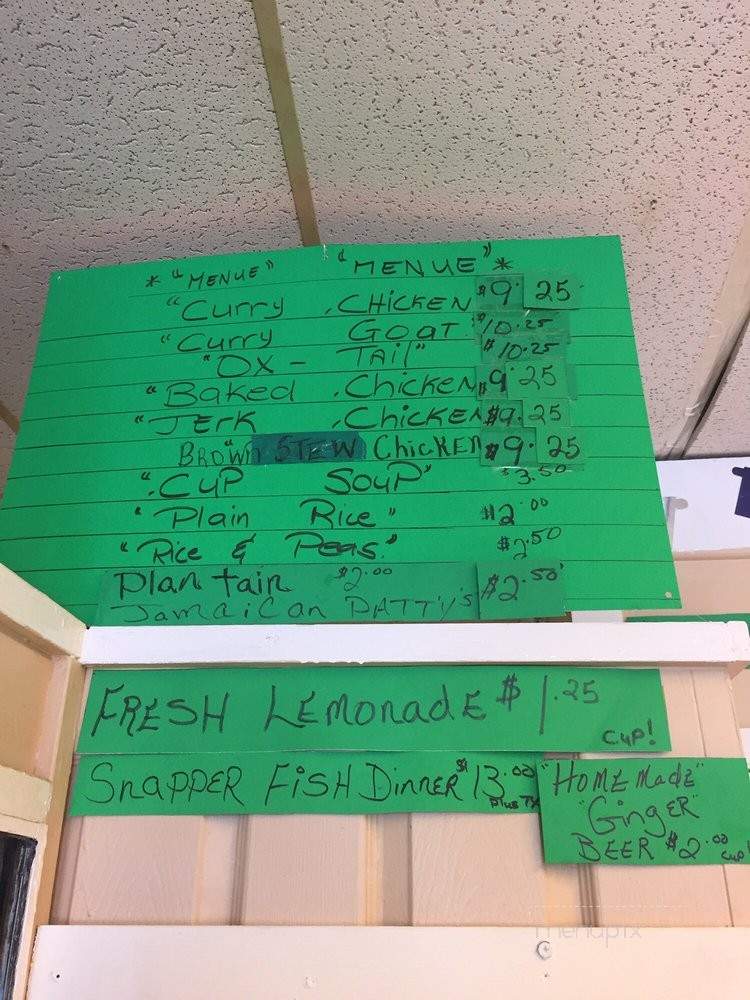 * "MENUE" "MENUE" *
"Curry . CHICKEN $9. 25
"Curry GOAT $10.25
"OX - TAil" $10.25
"Baked . Chicken $9. 25
"JERK . Chicken $9. 25
BROWN STEW Chicken $9. 25
". CuP SouP" $3.50
"Plain Rice" $2.00
"Rice & Peas." $2.50
Plantain $2.00
Jamaican PATTy's $2.50
FRESH LEmonadE $1.25
CuP!
SnAPPER FiSH DinnER $13.00
Plus TX
"HomE MadE"
"GingER"
BEER $2.00 Cup!
menupix